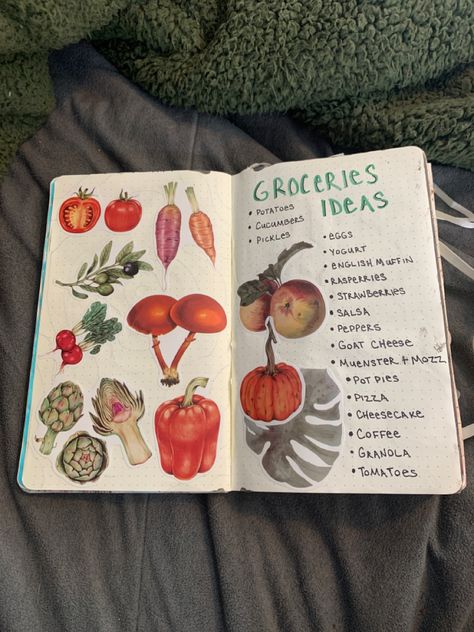 GROCERIES
IDEAS
• POTATOES
• CUCUMBERS
• PICKLES
• EGGS
• YOGURT
• ENGLISH MUFFIN
• RASPERRIES
• STRAWBERRIES
• SALSA
• PEPPERS
• GOAT CHEESE
• MUENSTER + MOZZ
• POT PIES
• PIZZA
• CHEESECAKE
• COFFEE
• GRANOLA
• TOMATOES